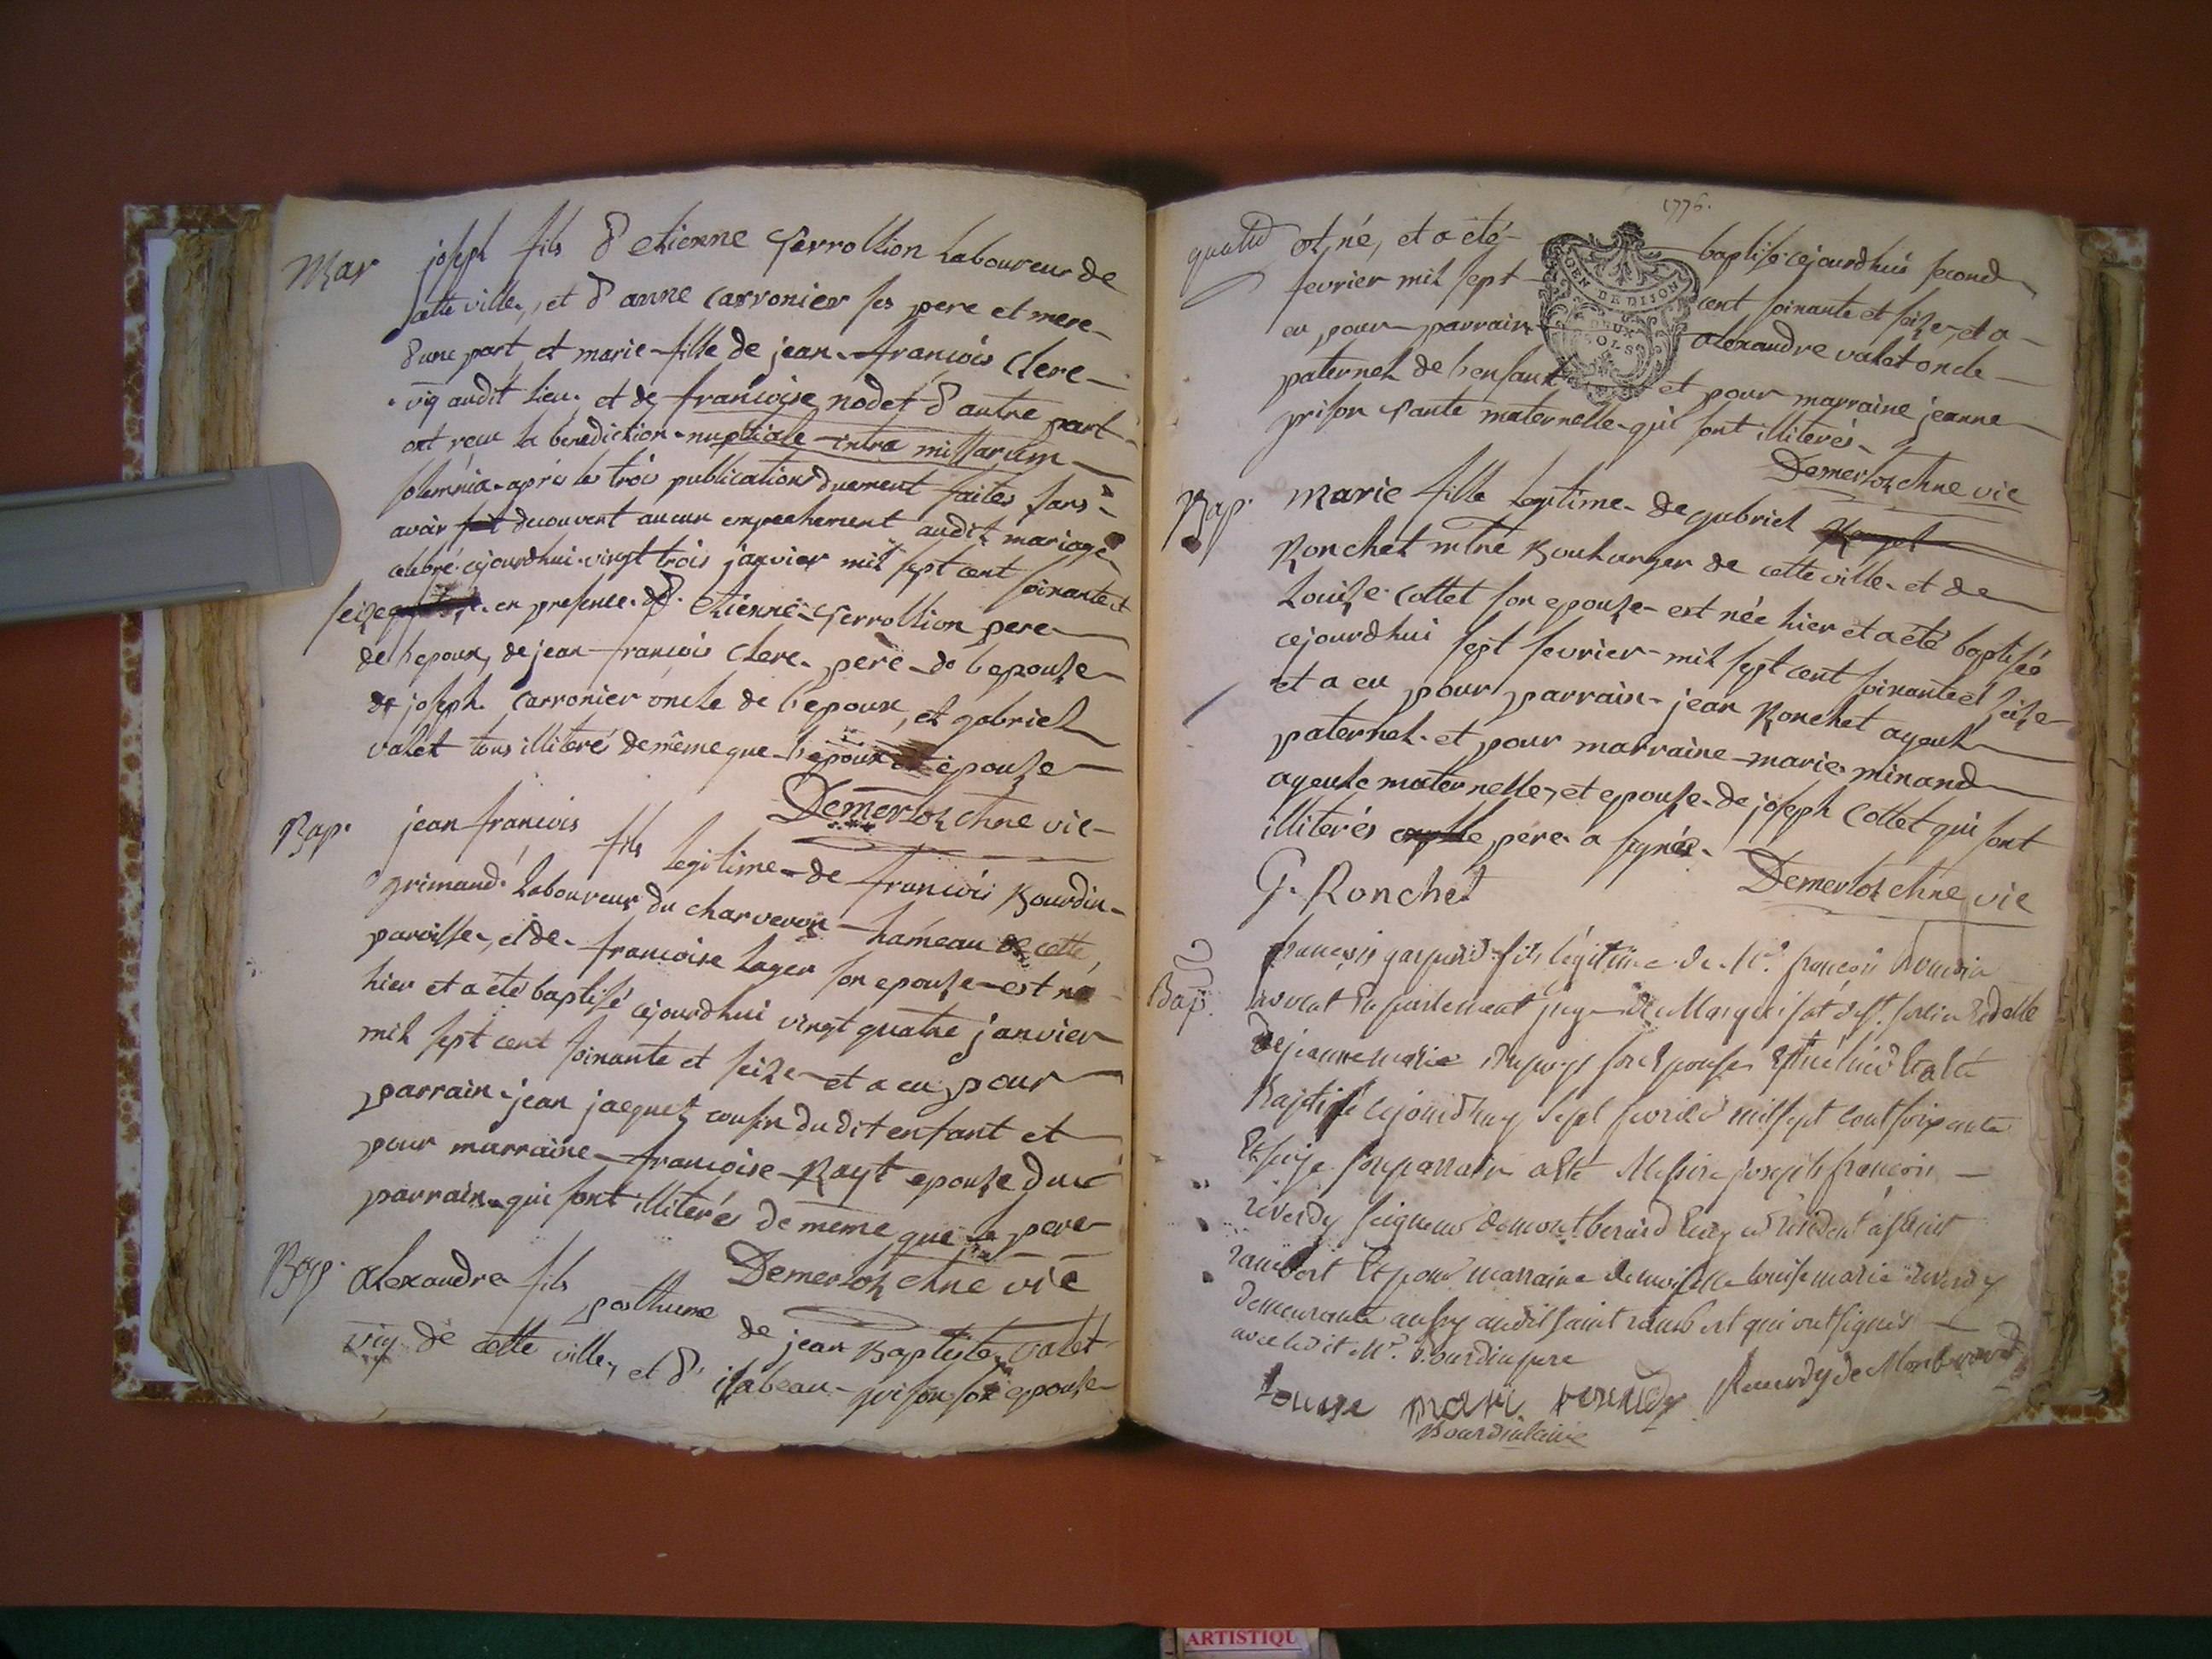 Mar joseph fils d'etienne ferrollion laboureur de
cette ville, et d'anne carronier ses pere et mere
d'une part et marie fille de jean francois clerc
vig audit lieu et de francoise nodet d'autre part
ont reçu la benediction nuptiale intra missarum
solemnia après les trois publications duement faites sans
avoir decouvert aucun empechement audit mariage
celebré cejourdhui vingt trois janvier mil sept cent soixante et
seize en presence d'etienne ferrollion pere
de l'epoux, de jean francois clerc père de l'epouse
de joseph carronier oncle de l'epoux, et gabriel
valet tous illiterés de même que l'epoux et epouse
Demerloz chne vic
Bap. jean francois fils legitime de francois Bourdin
grimaud laboureur du charveyron hameau de cette
paroisse, et de francoise lager son epouse est né
hier et a été baptisé cejourdhui vingt quatre janvier
mil sept cent soixante et seize et a eu pour
parrain jean jacquet cousin dudit enfant et
pour marraine francoise Rayt epouse du
parrain qui sont illiterés de même que le pere
Demerloz chne vic
Bap. alexandre fils posthume de jean Baptiste valet
vig de cette ville, et d'isabeau grison son epouse
1776.
est né, et a été baptisé cejourdhui second
fevrier mil sept cent soixante et seize, et a
eu pour parrain alexandre valet oncle
paternel de l'enfant et pour marraine jeanne
grison tante maternelle qui sont illiterés
GEN DE DIJON
DEUX
SOLS
Demerloz chne vic
Bap. Marie fille legitime de gabriel
Ronchet mtre Boulanger de cette ville et de
Louise Collet son epouse est née hier et a été baptisée
cejourdhui sept fevrier mil sept cent soixante et seize
et a eu pour parrain jean Ronchet ayeul
paternel et pour marraine marie minand
ayeule maternelle, et epouse de joseph Collet qui sont
illiterés le père a signé
G. Ronchet Demerloz chne vic
francois gaspard fils légitime de Mr. francois Bourdin
Bap. avocat En parlement juge du Marquisat de st.
de jeanne marie dupuys son Epouse Est né hier Et a Eté
Baptisé cejourdhuy sept fevrier mil sept cent soixante
Et seize son parrain a Eté Messire joseph francois
reverdy seigneur de montberard résident à saint
rambert Et pour marraine demoiselle louise marie reverdy
demeurante aussy audit saint rambert qui ont signés
avec ledit Mr. Bourdin pere
Louise mari reverdy Reverdy de Montberard
Bourdin
ARTISTIQU